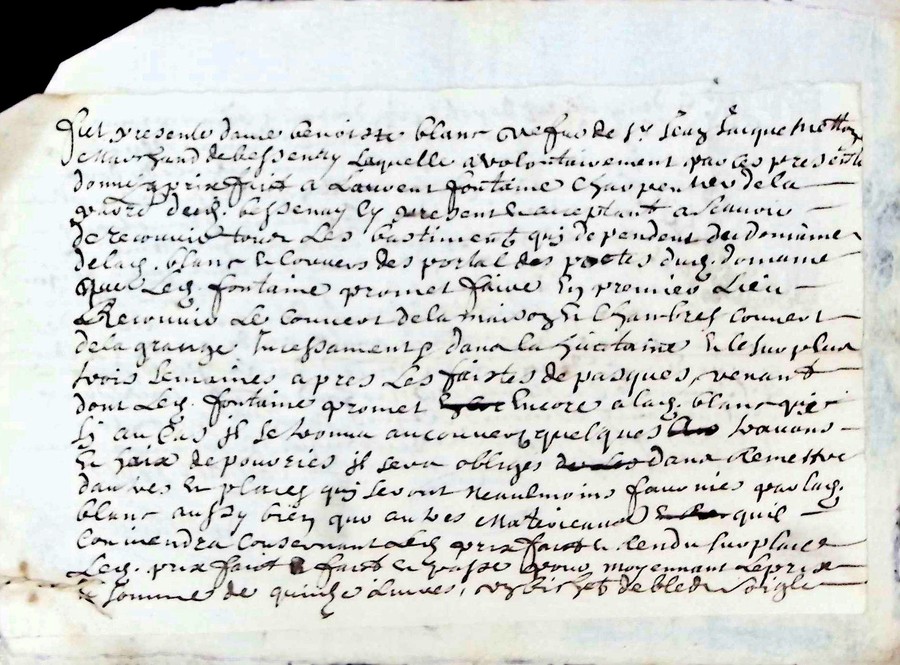 fut presente dame benoiste blanc vefue de Sr Jean Jacque
Marchand de bessenay laquelle a volontairement par ces presentes
donne a prix faict a Laurent fontaine Charpentier de la
parr. dud. bessenay Cy present et acceptant a scavoir
de recouvrir tous Les bastiments quj dependent du Domaine
de lad. blanc et Couvers des portal des portes dud. domaine
que led. fontaine promet faire En premier Lieu
Recouvrir Le Couvert de la maison Et Chambres Couvert
de la grange Incessament dans la huictaine Et le surplus
trois semaines apres Les faistes de pasques venant
dont Led. fontaine promet Encore a lad. blanc que
sj au Cas jl se trouva au couvert quelques travons
Et de pourries jl sera obliges dans Remettre
dautres Et places quj seront neaulmoins fournies par lad.
blanc aussy bien que autres Materieaux quil
Conviendra Concernant led. prix faict Et rendu sur place
Led. prix faict faict Et passe pour moyennant Le prix
Et somme de quinze Livres, un bichet de bled soigle